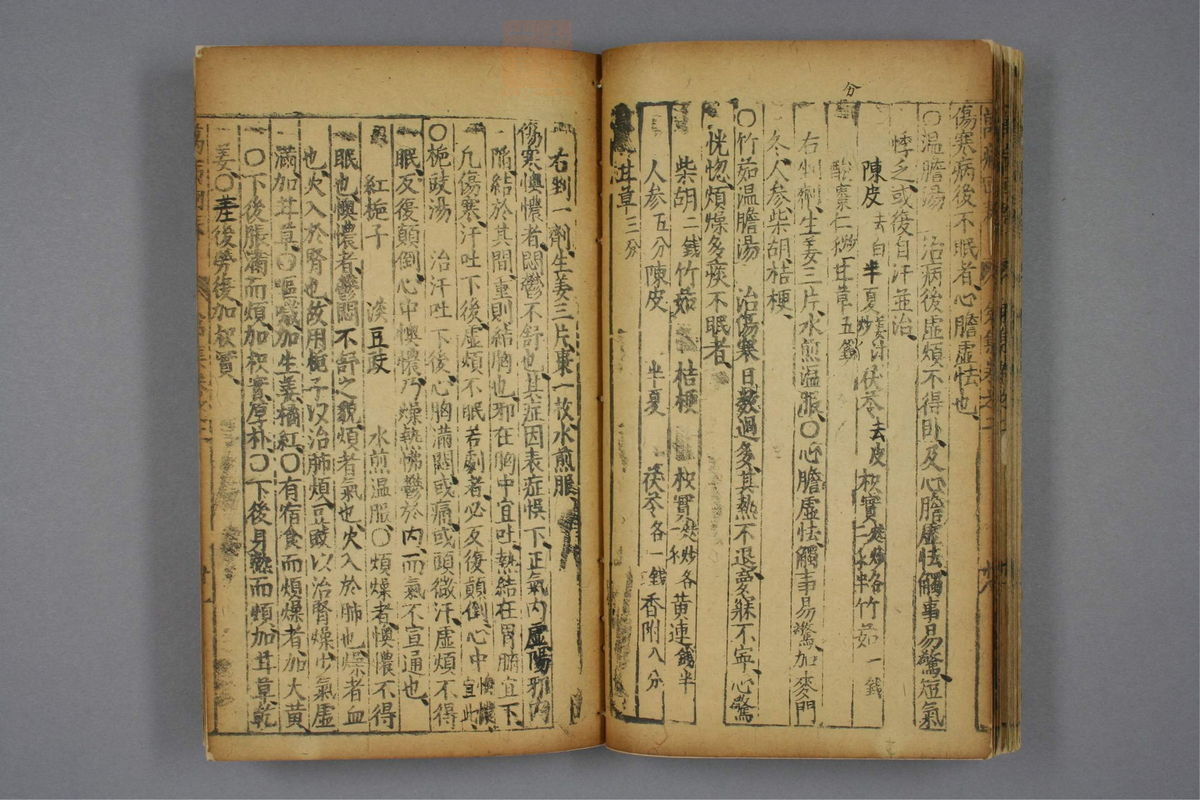 傷寒病後不眠者心膽虛怯也
〇溫膽湯 治病後虛煩不得卧及心膽虛怯觸事易驚短氣
悸乏或復自汗並治
陳皮去白半夏姜汁炒茯苓去皮枳實麸炒各二戔半竹茹一錢
分
酸棗仁炒甘草五分
右剉劑生姜三片水煎溫服〇心膽虛怯觸事易驚加麥門
冬人參柴胡桔梗
〇竹茹溫膽湯 治傷寒日數過多其熱不退夢寐不寧心驚
恍惚煩燥多痰不眠者
柴胡二錢竹茹 桔梗 枳實麸炒各一戔黃連錢半
人參五分陳皮 半夏 茯苓各一錢香附八分
甘草三分
右剉一劑生姜三片棗一枚水煎服
傷寒懊憹者悶鬱不舒也其症因表症悮下正氣內虛陽邪內
陷結於其間重則結胸也邪在胸中宜吐熱結在胃腑宜下
凡傷寒汗吐下後虛煩不眠若劇者必反復顛倒心中懊憹宜此
〇梔豉湯 治汗吐下後心胸滿悶或痛或頭微汗虛煩不得
眠反復顛倒心中懊憹乃燥熱怫鬱於內而氣不宣通也
紅梔子 淡豆豉 水煎溫服〇煩燥者懊憹不得
眠也懊憹者鬱悶不舒之貌煩者氣也火入於肺也燥者血
也火入於腎也故用梔子以治肺煩豆豉以治腎燥少氣虛
滿加甘草〇嘔噦加生姜橘紅〇有宿食而煩燥者加大黃
〇下後脹滿而煩加枳實厚朴〇下後身熱而煩加甘草乾
姜〇差後勞復加枳實